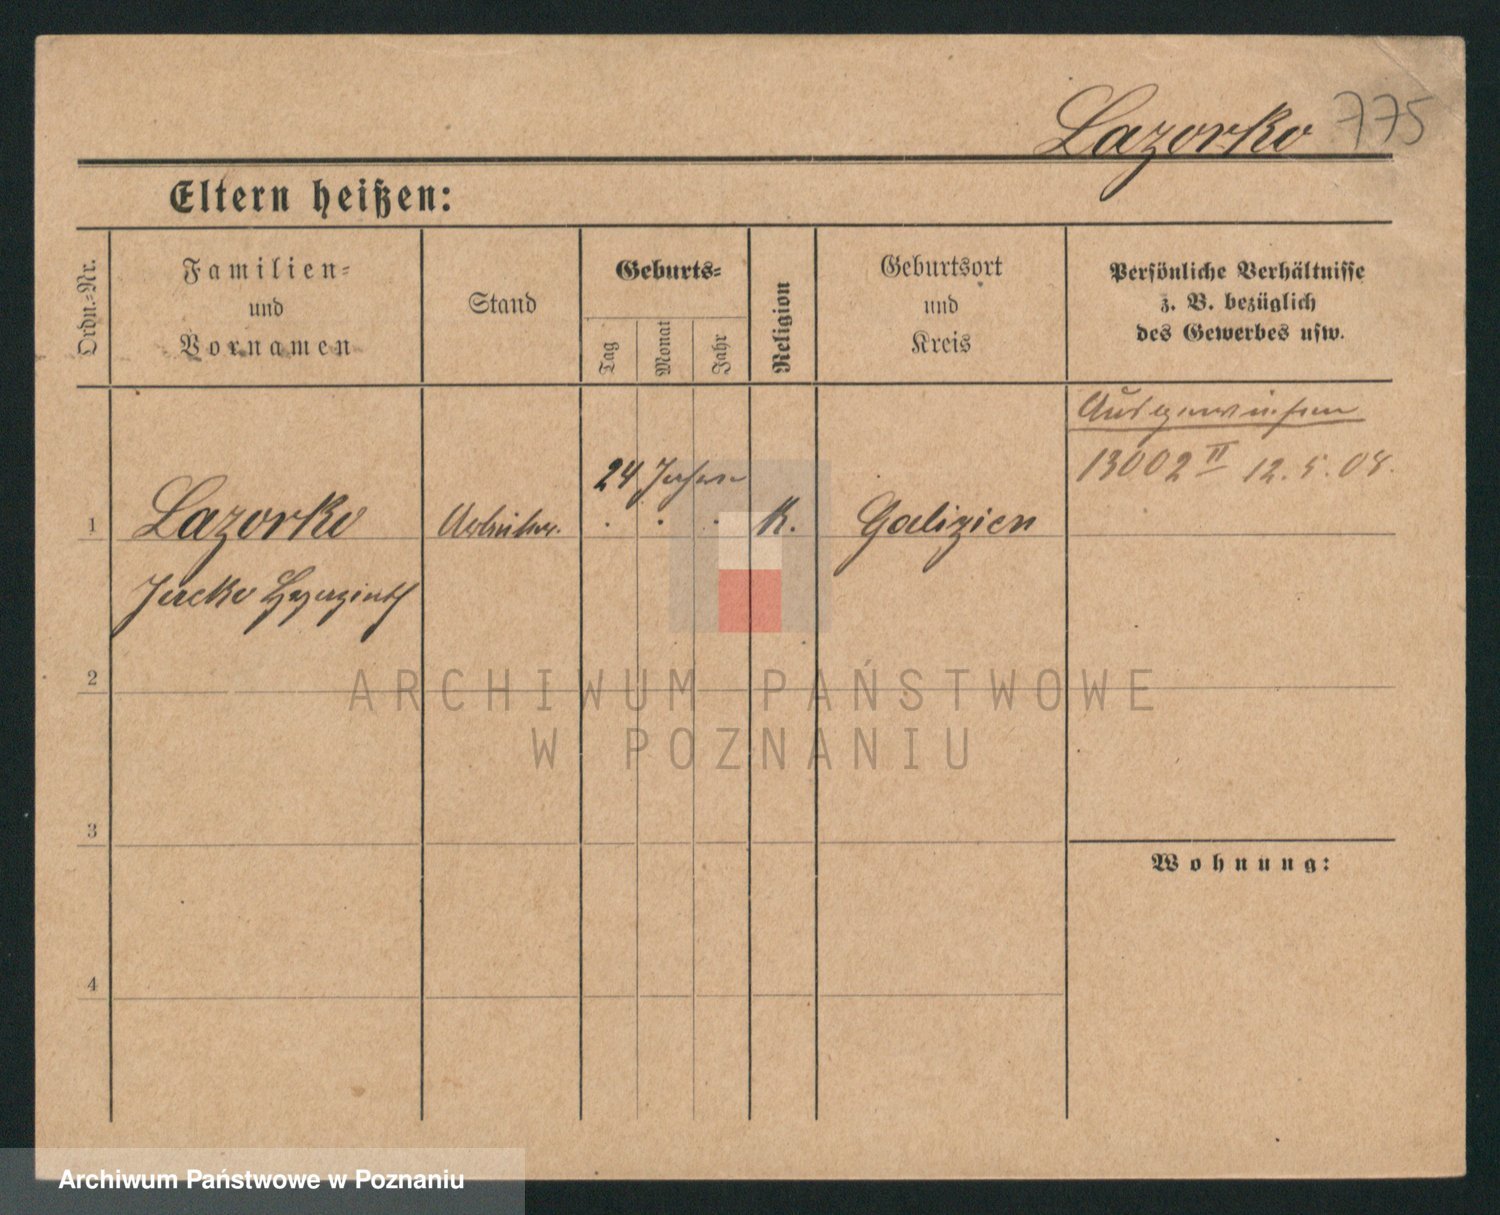 Lazorko 775
Eltern heißen:
Ordn.=Nr.
Familien=
und
Vornamen
Stand
Geburts=
Tag
Monat
Jahr
Religion
Geburtsort
und
Kreis
Persönliche Verhältnisse
z. B. bezüglich
des Gewerbes usw.
Ausgewiesen
13002 II 12.5.08.
24 Jahre
1 Lazorko Arbeiter. . . . K. Galizien
2
3
4
Wohnung:
ARCHIWUM PAŃSTWOWE
W POZNANIU
Archiwum Państwowe w Poznaniu